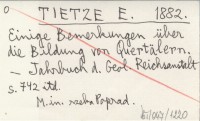 0 TIETZE E. 1882.
Einige Bemerkungen über
die Bildung von Quertälern.
– Jahrbuch d. Geol. Reichsanstalt
s. 742 itd.
M. in. rzeka Poprad.